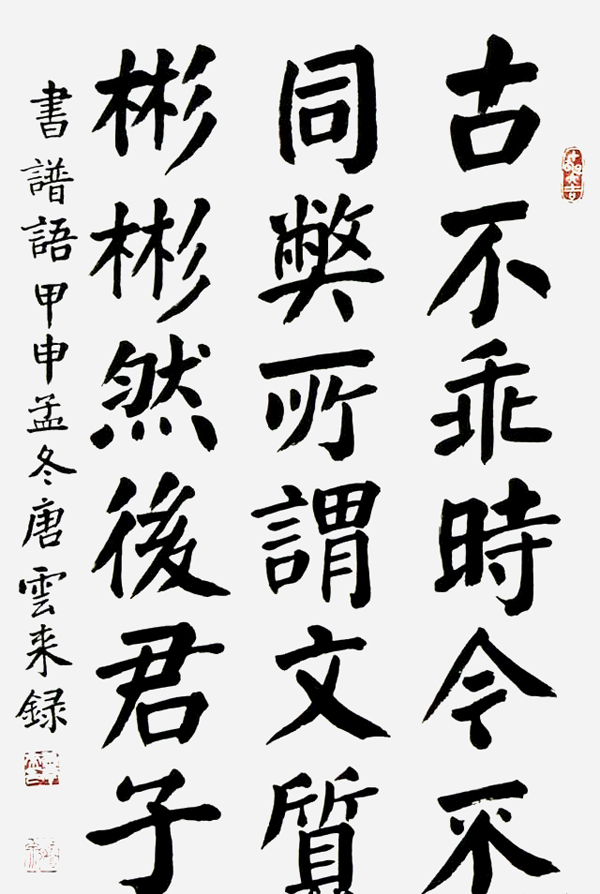 古不乖時今不
同弊所謂文質
彬彬然後君子
書譜語甲申孟冬唐雲来録